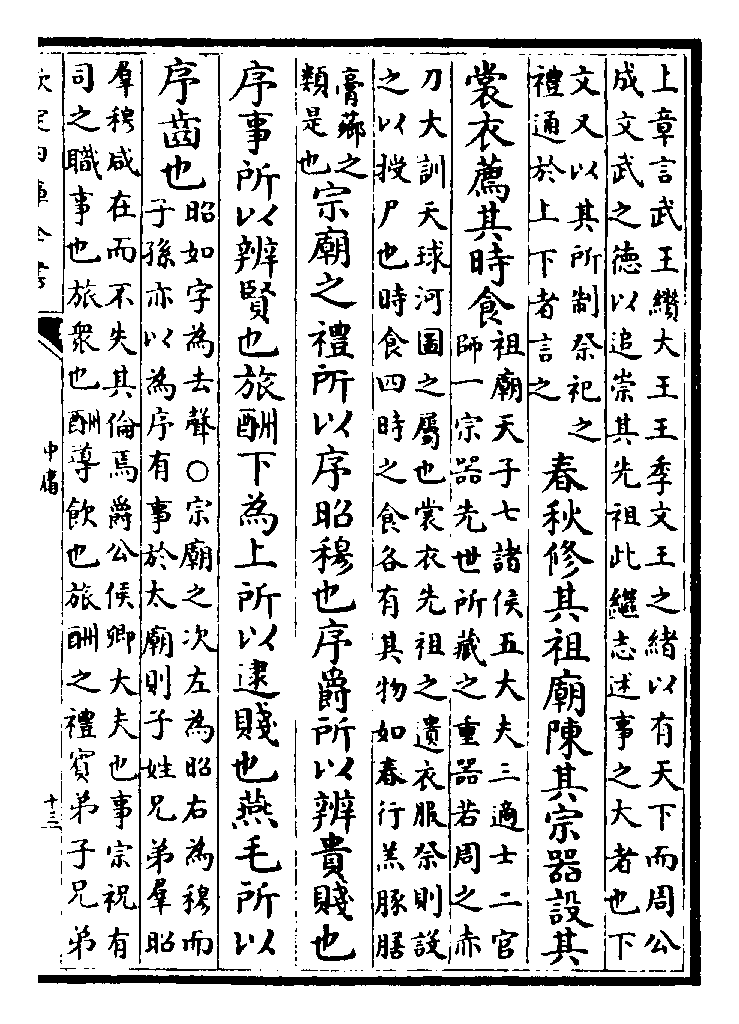 上章言武王纘大王王季文王之緒以有天下而周公
成文武之德以追崇其先祖此繼志述事之大者也下
文又以其所制祭祀之
禮通於上下者言之
春秋修其祖廟陳其宗器設其
裳衣薦其時食
祖廟天子七諸侯五大夫三適士二官
師一宗器先世所藏之重器若周之赤
刀大訓天球河圖之屬也裳衣先祖之遺衣服祭則設
之以授尸也時食四時之食各有其物如春行羔豚膳
膏薌之
類是也
宗廟之禮所以序昭穆也序爵所以辨貴賤也
序事所以辨賢也旅酬下為上所以逮賤也燕毛所以
序齒也
昭如字為去聲○宗廟之次左為昭右為穆而
子孫亦以為序有事於太廟則子姓兄弟羣昭
羣穆咸在而不失其倫焉爵公侯卿大夫也事宗祝有
司之職事也旅衆也酬導飲也旅酬之禮賓弟子兄弟
欽定四庫全書
中庸
十三